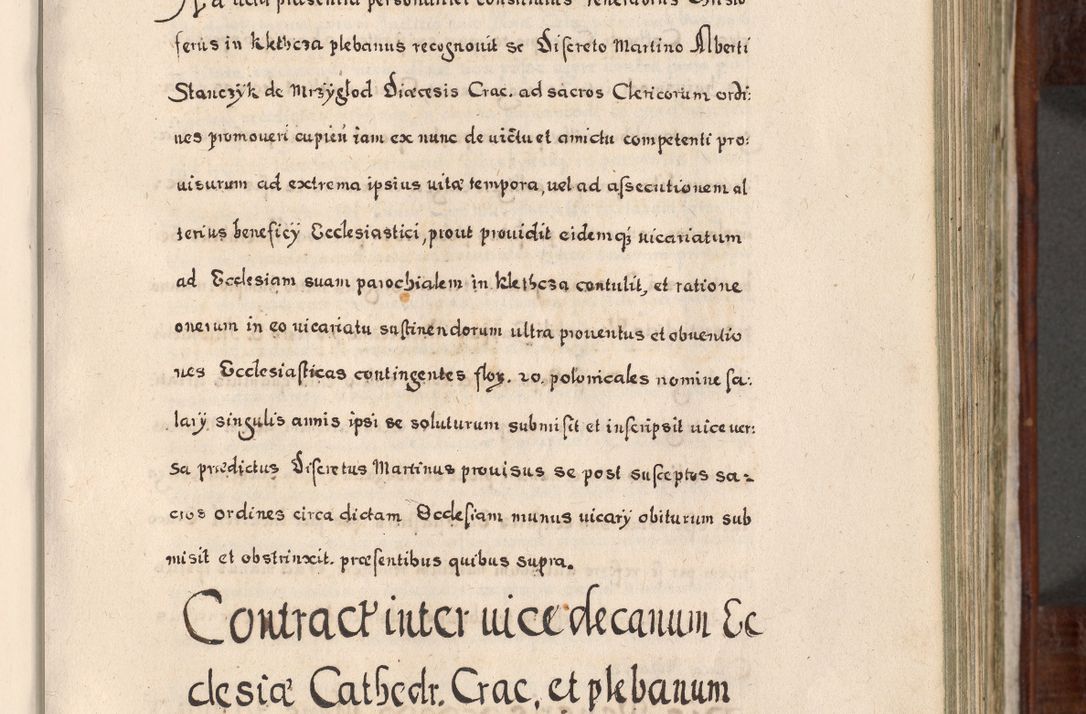 Ad acta præsentia personaliter constitutus Venerabilis Christo
ferus in Klethcza plebanus recognouit se Discreto Martino Alberti
Stanczÿk de Mrzÿgłod Diœcesis Crac. ad sacros Clericorum ordi:
nes promoueri cupien iam ex nunc de uictu et amictu competenti pro:
uisurum ad extrema ipsius uitæ tempora, uel ad assecutionem al
terius beneficÿ Ecclesiastici, prout prouidit eidemq; uicariatum
ad Ecclesiam suam parochialem in Klethcza contulit, et ratione
onerum in eo uicariatu sustinendorum ultra prouentus et obuentio
nes Ecclesiasticas contingentes flor. 20. polonicales nomine sa:
larÿ singulis annis ipsi se soluturum submisit et inscripsit uice uer:
sa prædictus Discretus Martinus prouisus se post susceptos sa-
cros ordines circa dictam Ecclesiam munus uicarÿ obiturum sub
misit et obstrinxit. præsentibus quibus supra.
Contract inter uice decanum Ec
clesiæ Cathedr. Crac. et plebanum